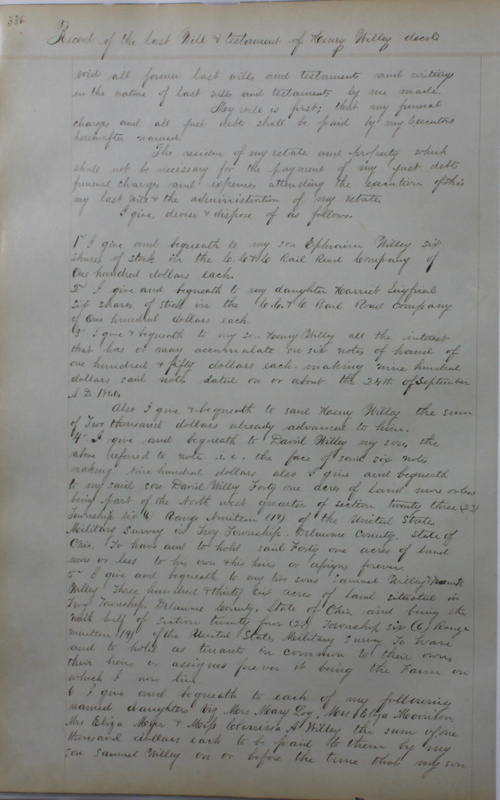 336
Record of the last Will & testament of Henry Willey decd
void all former last wills and testaments and writings
in the nature of last wills and testaments by me made.
My will is first; that my funeral
charges and all just debts shall be paid by my Executors
hereinafter named.
The residue of my estate and property which
shall not be necessary for the payment of my just debts
funeral charges and expenses attending the execution of this
my last will & the administration of my estate
I give, devise & dispose of as follows.
1st I give and bequeath to my son Ephraim Willey six
shares of stock in the C.C. & C Rail Road Company of
One hundred dollars each.
2d I give and bequeath to my daughter Harriet
six shares of stock in the C.C. & C Rail Road Company
of One hundred dollars each.
3d I give & bequeath to my son Henry Willey all the interest
that has or may accumulate on six notes of hand of
one hundred & fifty dollars each making nine hundred
dollars said notes dated on or about the 24th of September
A.D.
Also I give & bequeath to said Henry Willey the sum
of Two thousand dollars already advanced to him.
4th I give and bequeath to David Willey my son, the
above referred to note i.e. the face of said six notes
making Nine hundred dollars also I give and bequeath
to my said son David Willey Forty one acres of Land more or less
being part of the North west quarter of section twenty three (23)
Township six (6) Range Nineteen (19) of the United States
Military Survey in Troy Township, Delaware County, State of
Ohio. To have and to hold said Forty one acres of Land
more or less to his own & his heirs or assigns forever.
5th I give and bequeath to my two sons Samuel Willey &
Willey Three hundred & thirty six acres of Land situated in
Troy Township, Delaware County, State of Ohio and being the
half of Section twenty four (24) Township six (6) Range
nineteen (19) of the United States Military Survey To have
and to hold as tenants in common to their own
their heirs or assignes forever it being the Farm on
which I now live.
6 I give and bequeath to each of my following
named daughters Viz, Mrs Mary Main, Mrs
Mrs Eliza & Miss Clarissa A Willey the sum of one
thousand dollars each to be paid to them by my
son Samuel Willey on or before the time that my son